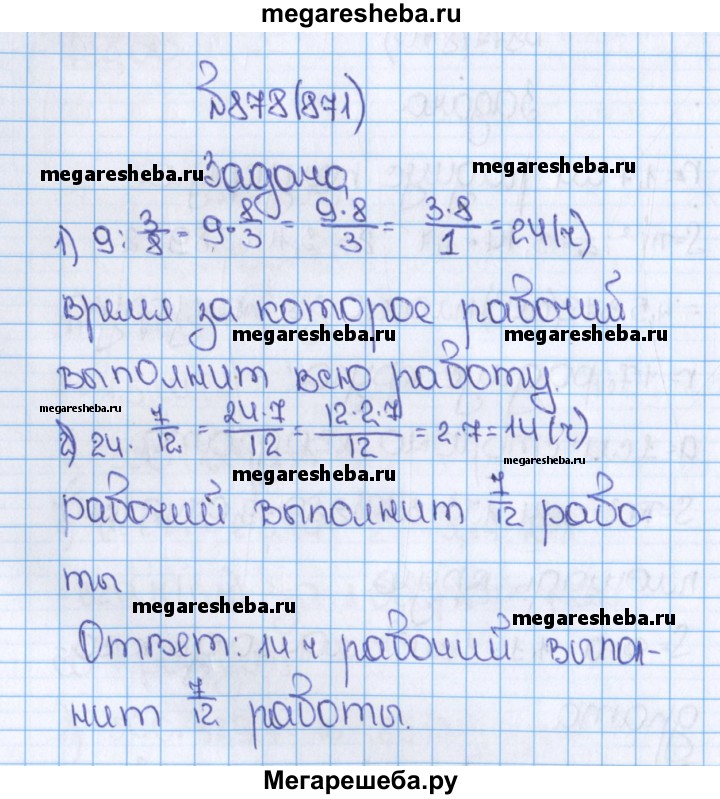 megaresheba.ru
№878(871)
megaresheba.ru Задача megaresheba.ru
1) 9 : 3/8 = 9 · 8/3 = 9·8/3 = 3·8/1 = 24 (ч)
время за которое рабочий
megaresheba.ru megaresheba.ru
выполнит всю работу.
megaresheba.ru
2) 24 · 7/12 = 24·7/12 = 12·2·7/12 = 2·7 = 14 (ч)
megaresheba.ru megaresheba.ru
рабочий выполнит 7/12 рабо-
ты
megaresheba.ru megaresheba.ru
Ответ: 14 ч рабочий выпол-
нит 7/12 работы.
Мегарешеба.ру